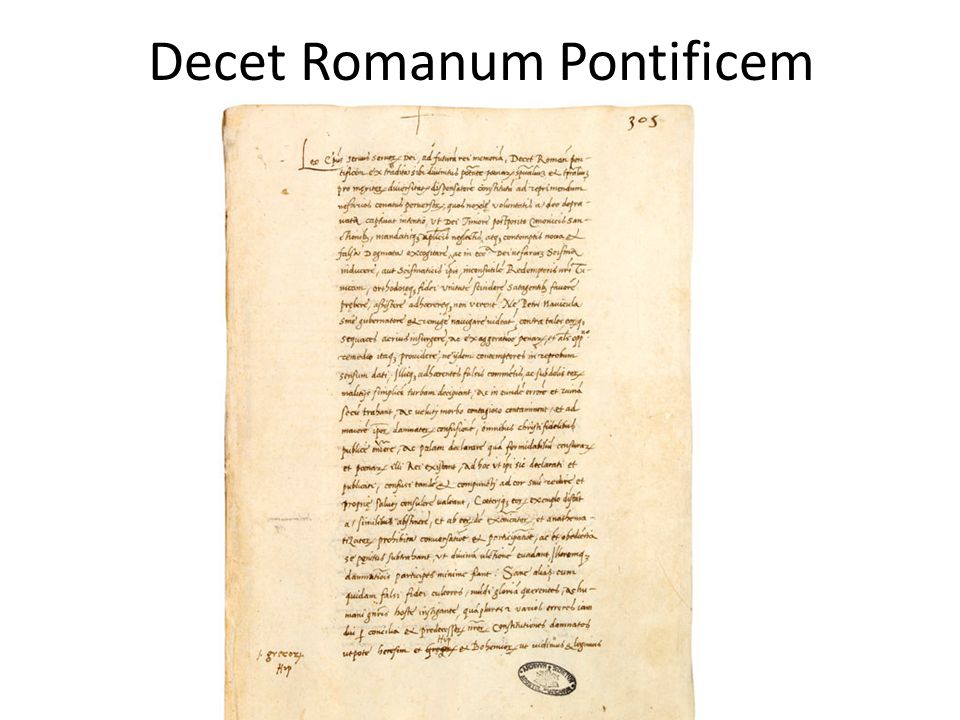 Decet Romanum Pontificem
305
Leo Ep̃us servus servoꝝ Dei, ad futurā rei memoriā, Decet Romanū pon-
tificem ex tradita sibi divinitus penaꝝ
pro meritoꝝ diversitate dispensatorē constitutū ad reprimendum
nefarios conatus perversoꝝ, quos noxiȩ voluntatis a deo depra-
vata captivat intentio, ut Dei timore postposito Canonicis San-
ctionibꝫ, mandatisqꝫ ap̃licis neglectis atqꝫ contemptis nova et
falsa Dogmata excogitare, ac in Dei nefariuꝫ Scisma
inducere, aut Scismaticis ip̄is, inconsutilē Redemptoris nr̄i Tu-
nicam, orthodoxeqꝫ fidei unitatē scindere satagentibꝫ favorē
prȩbere, assistere adhaerereqꝫ non verent, Ne Petri Navicula
sine gubernatore et remige navigare videat, contra tales eorqꝫ
sequaces acrius insurgere, ac exaggeratione penaꝝ et
remedio itaqꝫ providere, ne ijdem contemptores in reprobum
sensum dati, illisqꝫ adhaerentes falsis commentis, ac subdolis eoꝝ
malitijs simplicē turbam decipiant, ac in eundē errorē et ruinā
secū trahant, ac veluti morbo contagioso contaminent, et ad
maiorē ipsoꝝ damnatoꝝ confusionē, omnibus christifidelibus
publice, ac palam declarare quā formidabiliū censuraꝝ
et poenaꝝ illi Rei existant, ad hoc ut ipi sic declarati et
publicati, confusi tandē et compuncti ad cor suū redire et
propriȩ saluti consulere valeant, Coeteriqꝫ exemplo
a similibus abstinere, et ab de et anathema-
tizatoꝝ prohibita conversatione et participatione, ac et obediētia
se penitus subtrahant, ut divinā ultionē evadant
damnationis participes minime fiant. Sane alias cum
quidam falsi fidei cultores, mūdi gloriā querentes, ac hu-
mani gn̄ris hoste instigante quāplures et varios errores iam
dui ꝑ concilia et predecessoꝝ nr̄oꝝ Constitutiones damnatos
utpote heresim et et Bohemoꝝ, ut vidimus et legimus